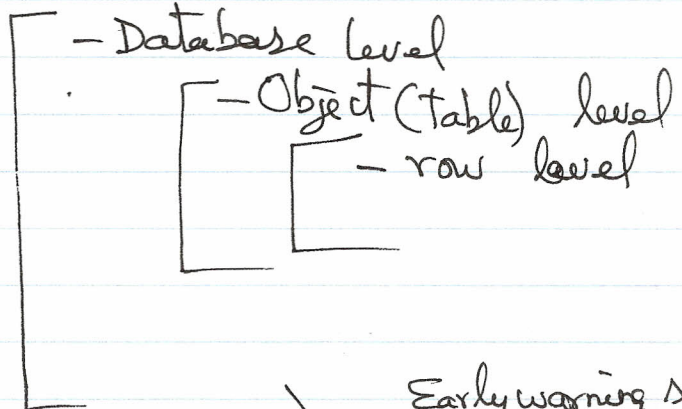 - Database level
- Object (table) level
- row level
Early warning s